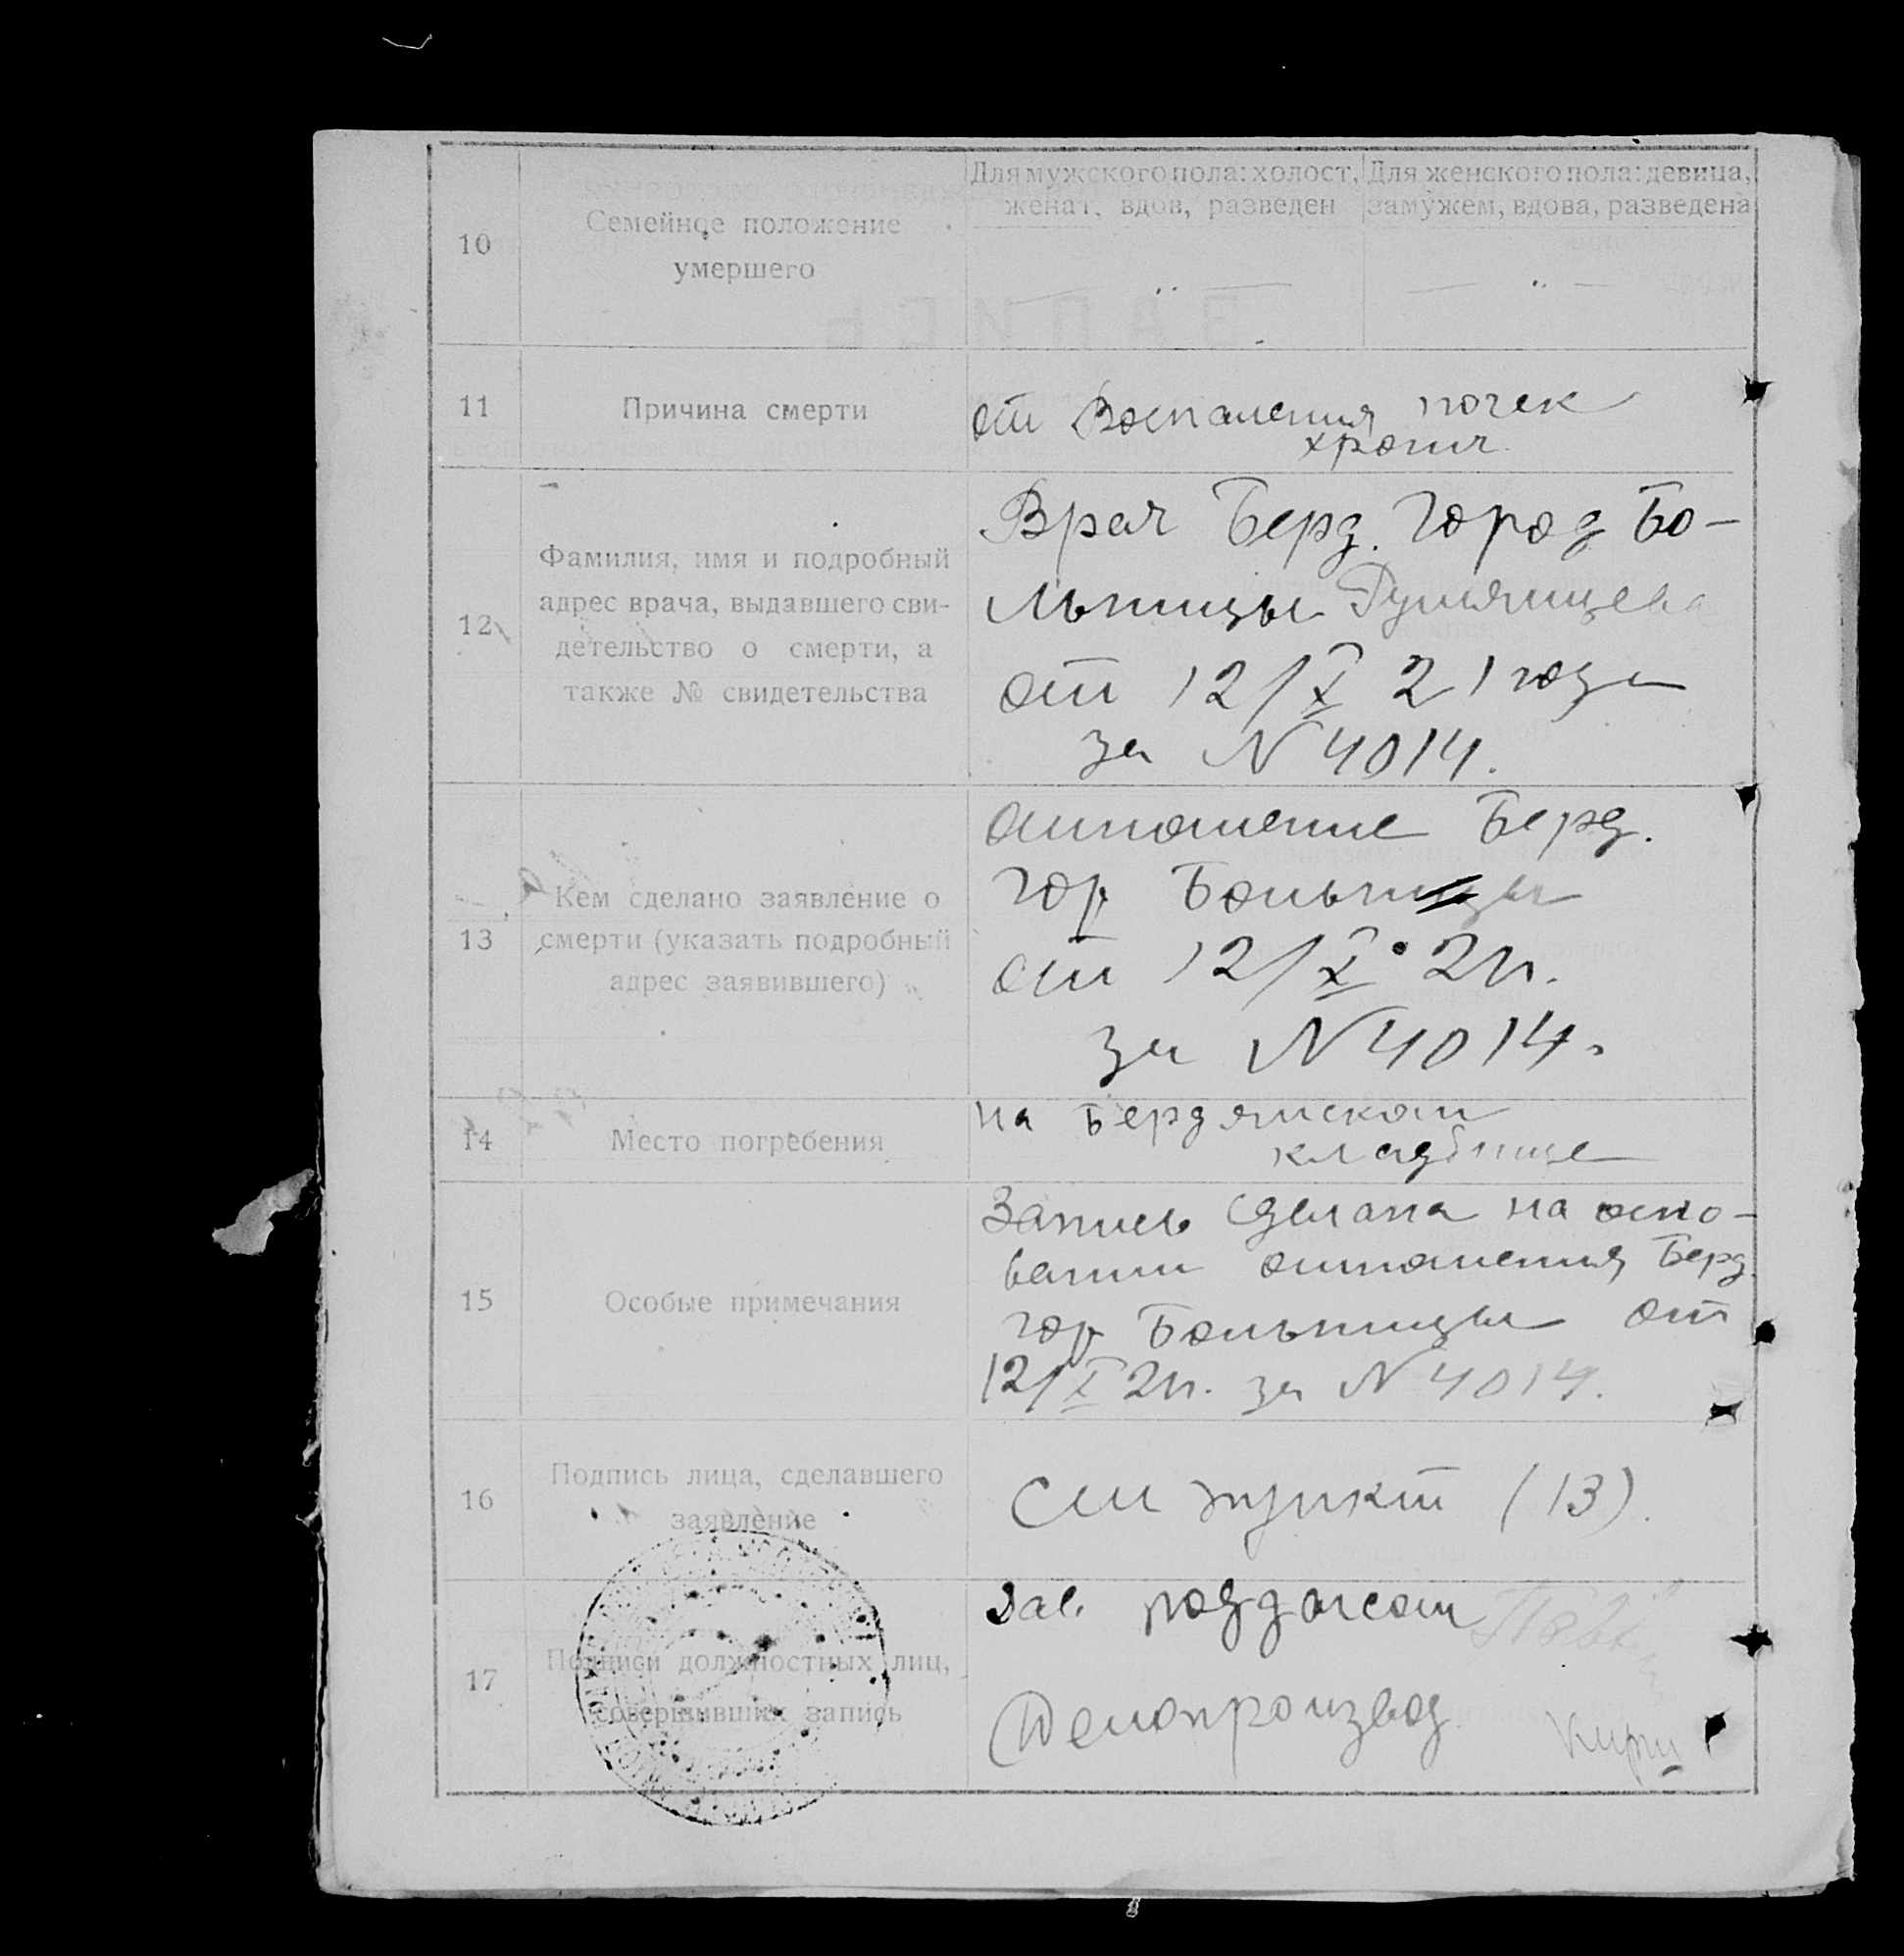 Для мужского пола: холост,
женат, вдов, разведен
Для женского пола: девица,
замужем, вдова, разведена
10
Семейное положение
умершего
— „ —
— „ —
11
Причина смерти
от Воспаления почек
хронич.
12
Фамилия, имя и подробный
адрес врача, выдавшего сви-
детельство о смерти, а
также № свидетельства
Врач Берд. Город Бо-
льницы Румянцева
от 12/X 21 года
за N 4014.
13
Кем сделано заявление о
смерти (указать подробный
адрес заявившего)
отношение Берд.
гор Больницы
от 12/X 21г.
за N 4014.
14
Место погребения
на Бердянском
кладбище
15
Особые примечания
Запись сделана на осно-
вании отношения Берд.
гор Больницы от
12/X 21г. за N 4014.
16
Подпись лица, сделавшего
заявление
См пункт (13).
17
Подписи должностных лиц,
совершивших запись
Зав.
Делопроизвод.